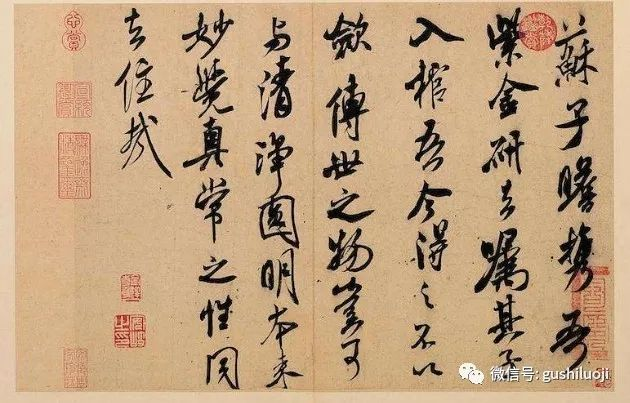 蘇子瞻攜吾
紫金研去嘱其子
入棺吾今得之不以
斂傳世之物豈可
与清淨圓明本来
妙覺真常之性同
去住哉
微信号: gushiluoji